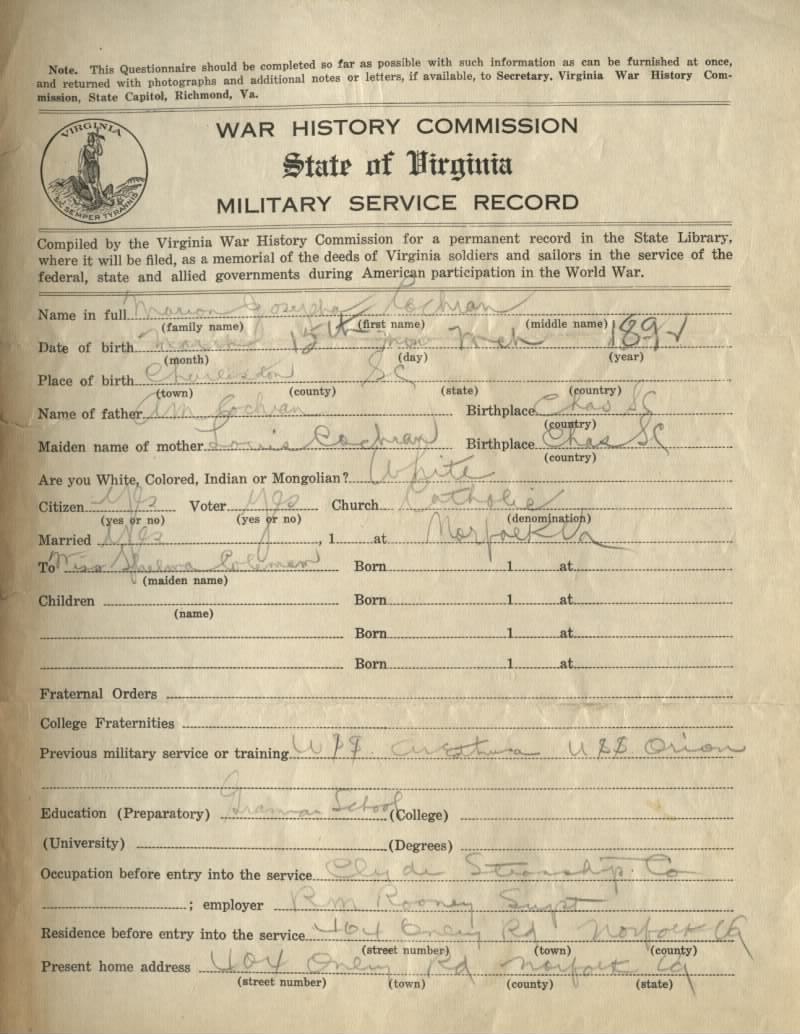 Note. This Questionnaire should be completed so far as possible with such information as can be furnished at once,
and returned with photographs and additional notes or letters, if available, to Secretary, Virginia War History Com-
mission, State Capitol, Richmond, Va.
VIRGINIA
SIC SEMPER TYRANNIS
WAR HISTORY COMMISSION
State of Virginia
MILITARY SERVICE RECORD
Compiled by the Virginia War History Commission for a permanent record in the State Library,
where it will be filed, as a memorial of the deeds of Virginia soldiers and sailors in the service of the
federal, state and allied governments during American participation in the World War.
Name in full Marion Joseph Cochran
(family name) (first name) (middle name)
Date of birth 1891
(month) (day) (year)
Place of birth Charleston SC
(town) (county) (state) (country)
Name of father Cochran Birthplace Chas SC
(country)
Maiden name of mother Cochran Birthplace Chas SC
(country)
Are you White, Colored, Indian or Mongolian? White
Citizen Yes Voter Yes Church Catholic
(yes or no) (yes or no) (denomination)
Married Yes , 1 at Norfolk Va
To Miss Coleman Born 1 at
(maiden name)
Children Born 1 at
(name)
Born 1 at
Born 1 at
Fraternal Orders
College Fraternities
Previous military service or training USS USS Orion
Education (Preparatory) Gramar School (College)
(University) (Degrees)
Occupation before entry into the service Clyde Steamship Co
; employer RM Rooney Supt
Residence before entry into the service Rd Norfolk Va
(street number) (town) (county)
Present home address Rd Norfolk Va
(street number) (town) (county) (state)